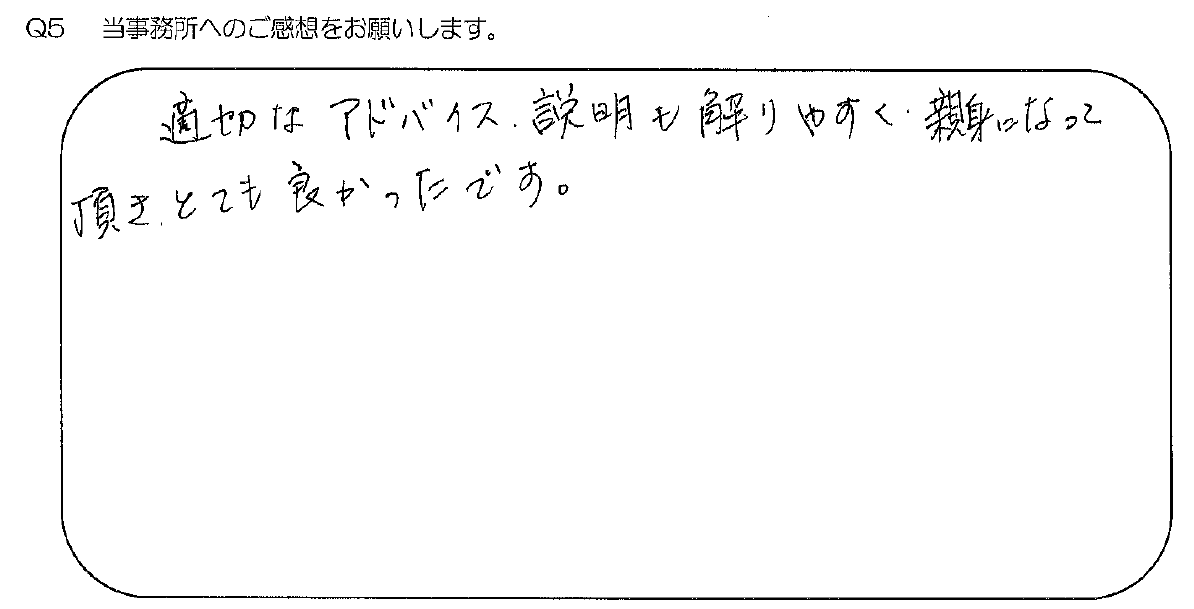 Q5 当事務所へのご感想をお願いします。
適切なアドバイス、説明も解りやすく、親身になって
頂き、とても良かったです。